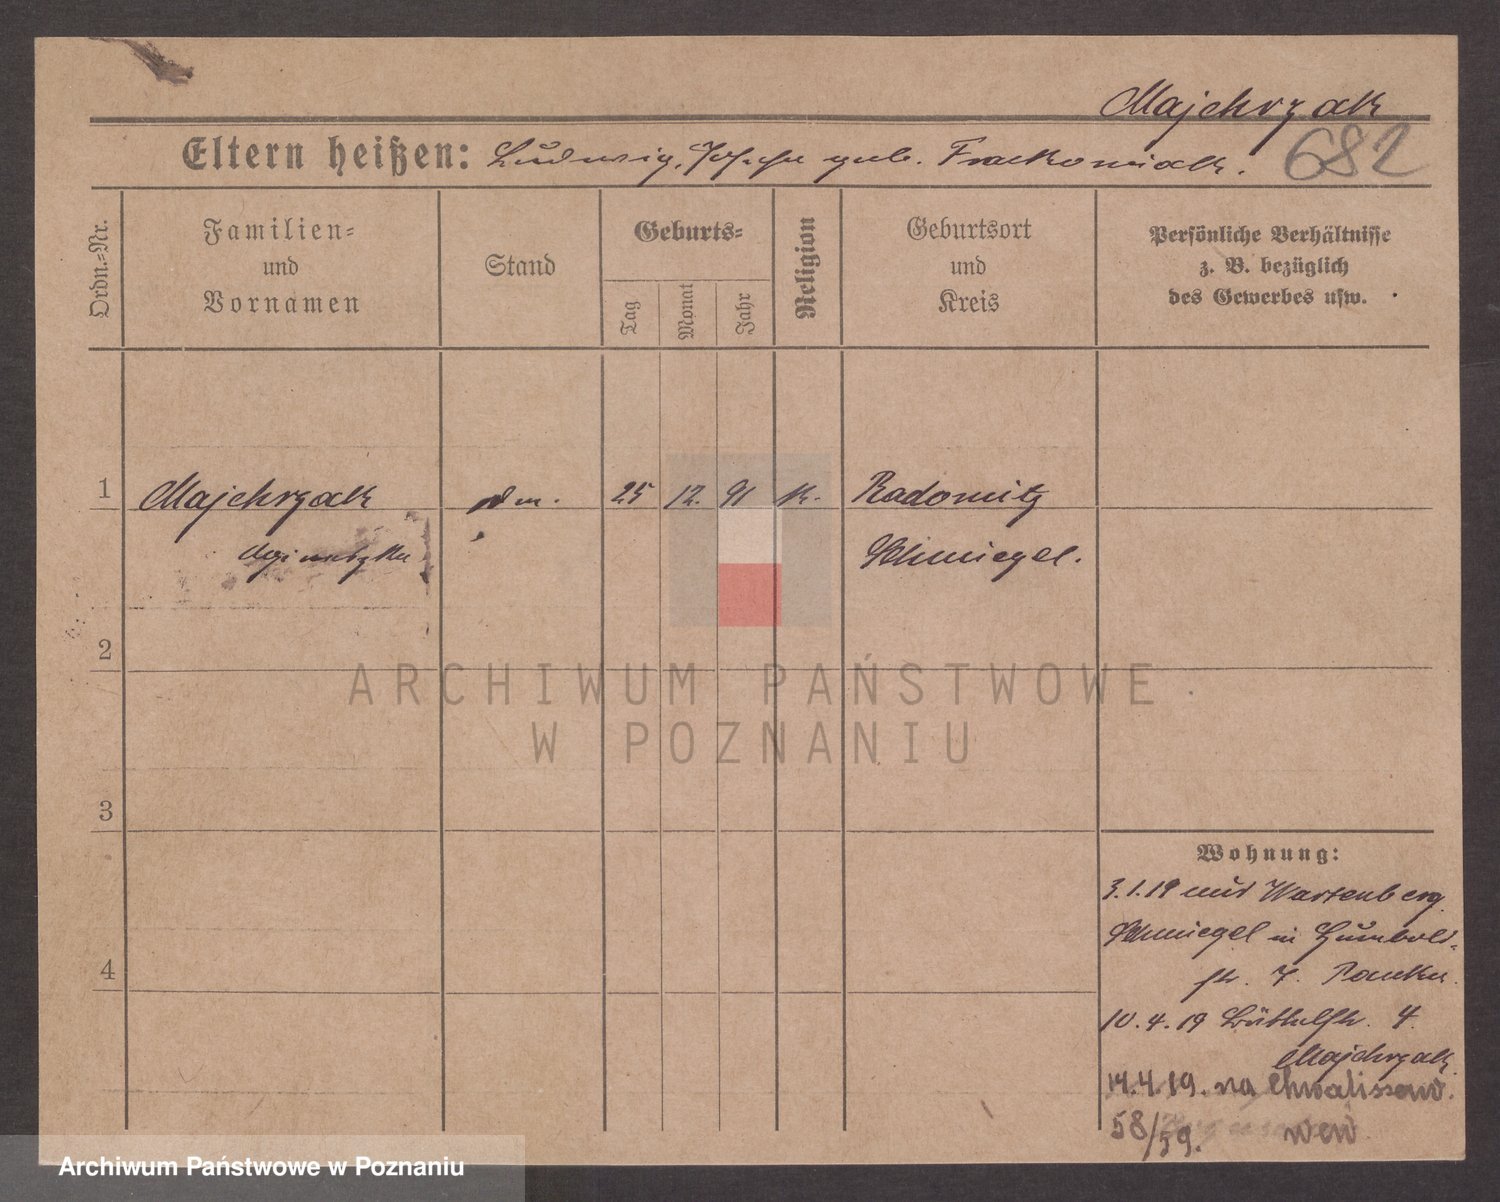 Majchrzak
Eltern heißen: Ludwig, geb. Frackowiak.
682
Ordn.-Nr.
Familien-
und
Vornamen
Stand
Geburts-
Tag
Monat
Jahr
Religion
Geburtsort
und
Kreis
Persönliche Verhältnisse
z. B. bezüglich
des Gewerbes usw.
1
Majchrzak
25 12. 91 k. Radomitz
Schmiegel.
2
ARCHIWUM PAŃSTWOWE
W POZNANIU
3
Wohnung:
3.1.19 aus Wartenberg
Schmiegel in Humbold-
str. 7.
4
10.4.19 4.
Majchrzak
14.4.19. na Chwaliszew.
58/59. wew
Archiwum Państwowe w Poznaniu